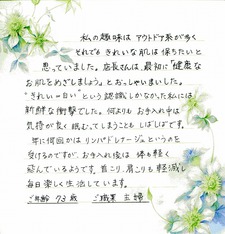 私の趣味は アウトドア系が多く
それでも きれいな肌は保ちたいと
思っていました。店長さんは、最初に「健康な
お肌をめざしましょう」とおっしゃいました。
"きれい=白い"という認識しかなかった私には
新鮮な衝撃でした。何よりもお手入れ中は
気持が良く 眠むってしまうことも しばしばです。
年に何回かは リンパドレナージュというのを
受けるのですが、お手入れ後は 体も軽く
感んでいるようです。首こり、肩こりも 軽減し
毎日 楽しく生活しています。
ご年齢 73歳 ご職業 主婦